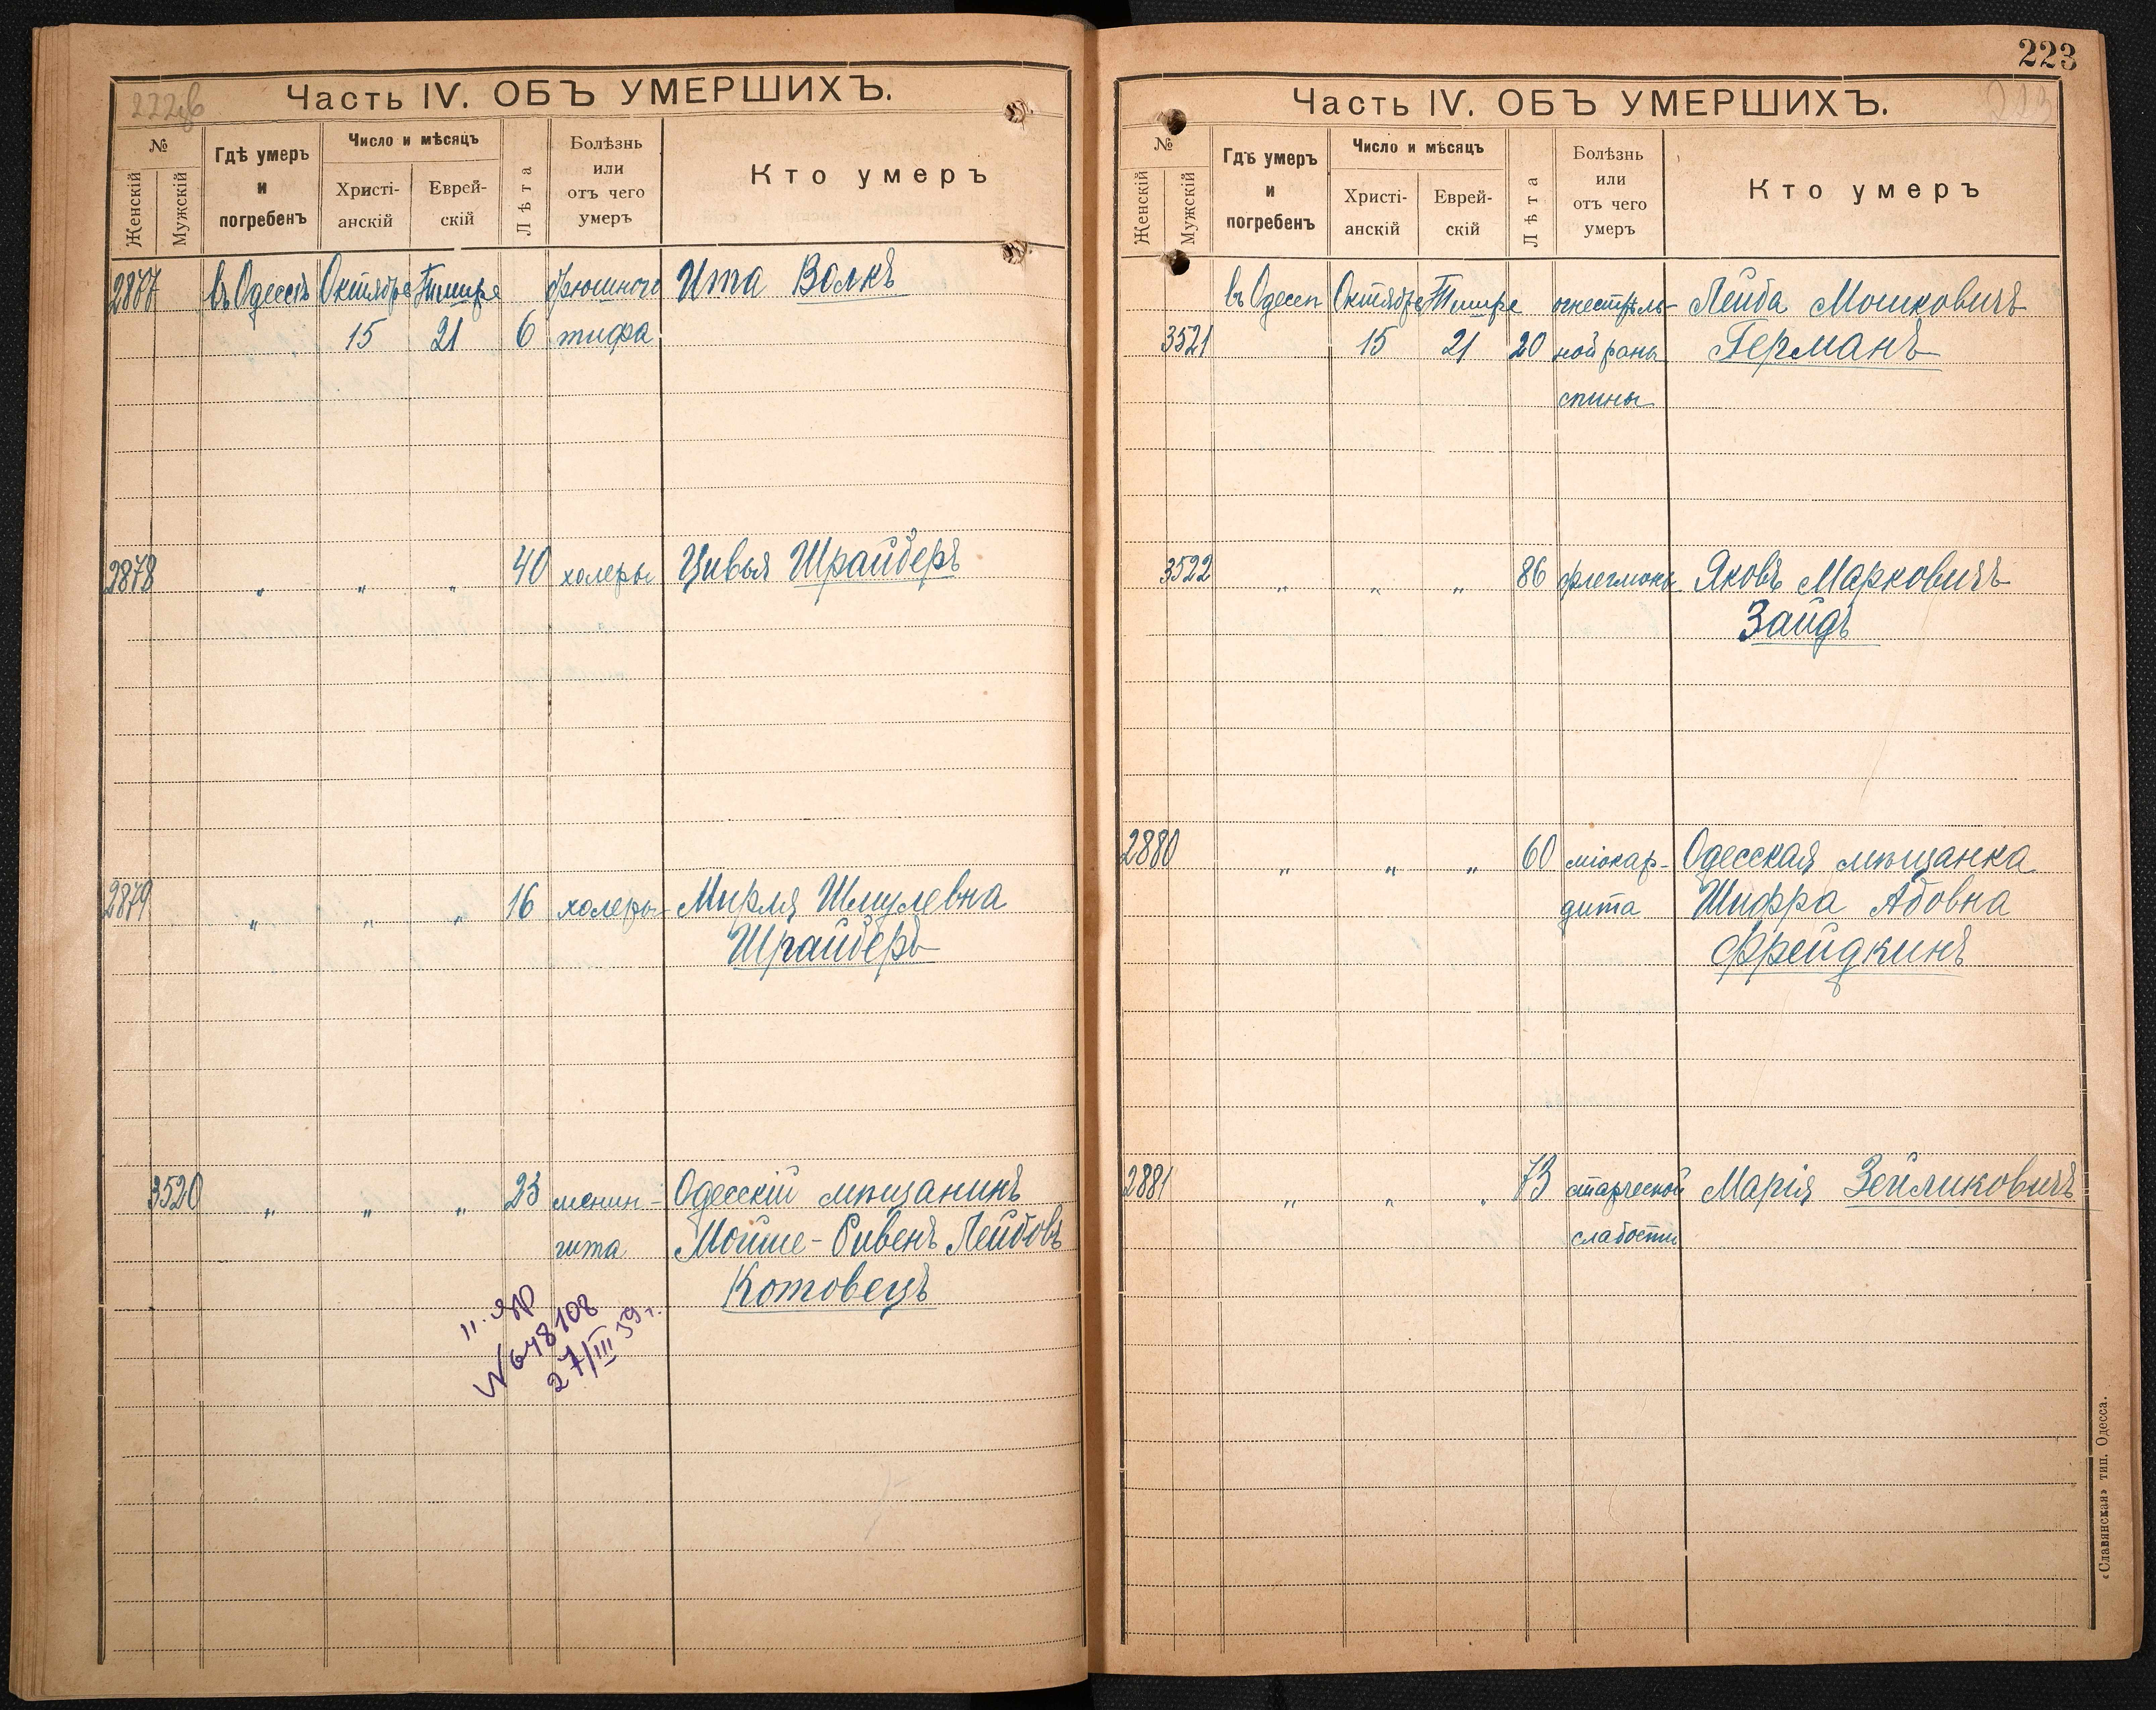 222об
Часть IV. ОБЪ УМЕРШИХЪ.
№
Женскій
Мужскій
Гдѣ умеръ
и
погребенъ
Число и мѣсяцъ
Христі-
анскій
Еврей-
скій
Лѣта
Болѣзнь
или
отъ чего
умеръ
Кто умеръ
2877 въ Одессѣ Октября Тишре брюшного Ита Волкъ
15 21 6 тифа
2878 " " " 40 холеры Цивья Шрайберъ
2879 " " " 16 холеры Мирля Шмулевна
Шрайберъ
3520 " " " 23 менин- Одесскій мѣщанинъ
гита Мойше-Рувенъ Лейбовъ
Котовецъ
№648108
27/III 59 г.
223
223
Часть IV. ОБЪ УМЕРШИХЪ.
№
Женскій
Мужскій
Гдѣ умеръ
и
погребенъ
Число и мѣсяцъ
Христі-
анскій
Еврей-
скій
Лѣта
Болѣзнь
или
отъ чего
умеръ
Кто умеръ
въ Одессѣ Октября Тишре огнестрѣль- Лейба Мошковичъ
3521 15 21 20 ной раны Германъ
спины
3522 " " " 86 флегмоны Яковъ Марковичъ
Зайдъ
2880 " " " 60 міокар- Одесская мѣщанка
дита Шифра Абовна
Фрейдкинъ
2881 " " " 73 старческой Марія Зейликовичъ
слабости
«Славянская» тип. Одесса.